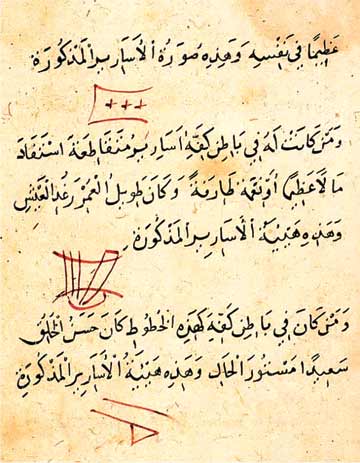 عَظِيمًا فِي نَفْسِهِ وَهَذِهِ صُورَةُ الْأَسَارِيرِ الْمَذْكُورَةِ
+++
وَمَنْ كَانَتْ لَهُ فِي بَاطِنِ كَفِّهِ أَسَارِيرُ مُتَقَاطِعَةٌ اسْتَفَادَ
مَالًا عَظِيمًا أَوْ نِعْمَةً طَارِئَةً وَكَانَ طَوِيلَ الْعُمْرِ رَغْدَ الْعَيْشِ
وَهَذِهِ هَيْئَةُ الْأَسَارِيرِ الْمَذْكُورَةِ
وَمَنْ كَانَ فِي بَاطِنِ كَفِّهِ كَهَذِهِ الْخُطُوطِ كَانَ حَسَنَ الْخُلُقِ
سَعِيدًا مَسْتُورَ الْحَالِ وَهَذِهِ هَيْئَةُ الْأَسَارِيرِ الْمَذْكُورَةِ